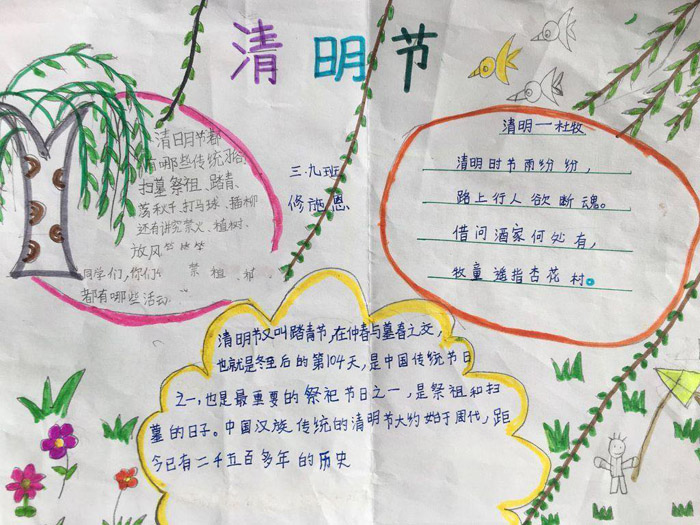 清明节
清明节都
有哪些传统习俗
扫墓祭祖、踏青、
荡秋千、打马球、插柳
还有讲究禁火、植树、
放风筝
同学们,你们 禁 植
都有哪些活动
三.九班
修施恩
清明一杜牧
清明时节雨纷纷,
路上行人欲断魂。
借问酒家何处有,
牧童遥指杏花村。
清明节又叫踏青节,在仲春与墓春之交,
也就是冬至后的第104天,是中国传统节日
之一,也是最重要的祭祀节日之一,是祭祖和扫
墓的日子。中国汉族传统的清明节大约始于周代,距
今已有二千五百多年的历史